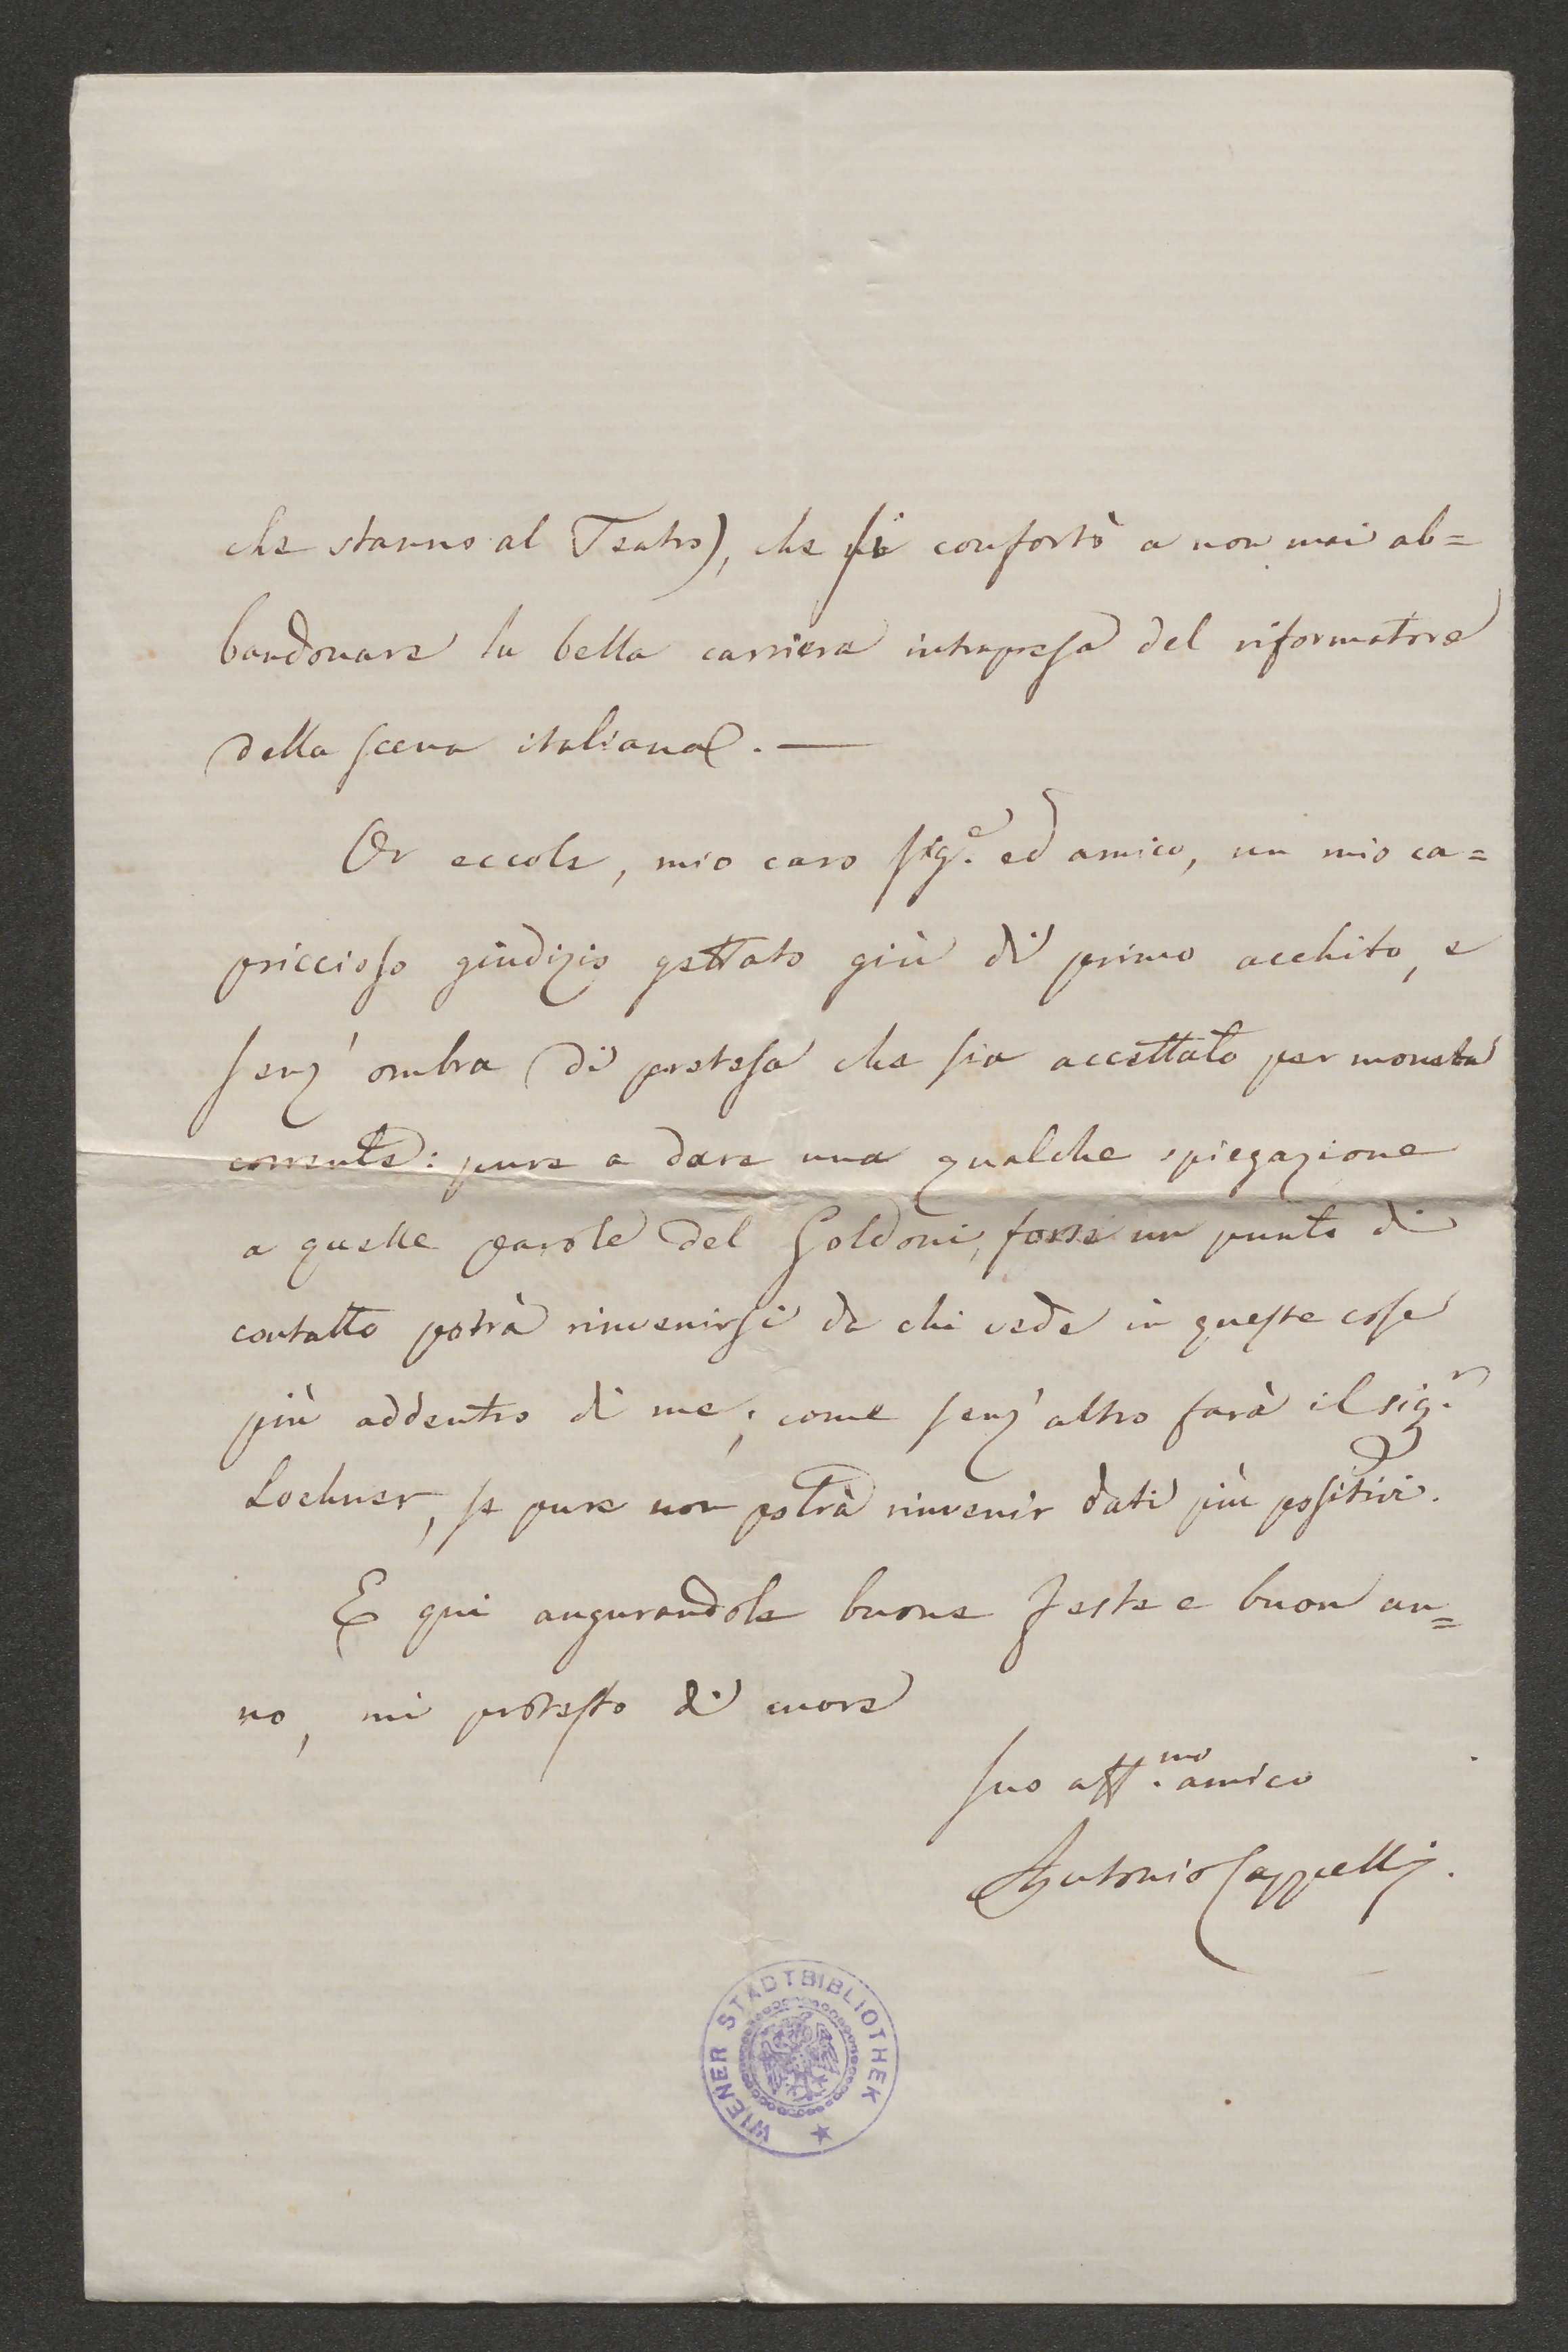 che stanno al Teatro), che si confortò a non mai ab=
bandonare la bella carriera intrapresa del riformatore
della scena italiana. —
Or eccole, mio caro sig.e ed amico, un mio ca=
priccioso giudizio gettato giù di primo acchito, e
senz' ombra di pretesa che sia accettato per moneta
corrente: pure a dare una qualche spiegazione
a quelle parole del Goldoni, forse un punto di
contatto potrà rinvenirsi da chi vede in queste cose
più addentro di me; come senz' altro farà il sig.r
Lochner, se pure non potrà rinvenir dati più positivi.
E qui augurandole buone feste e buon an=
no, mi protesto di cuore
Suo aff.mo amico
Antonio Cappelli.
WIENER STADTBIBLIOTHEK